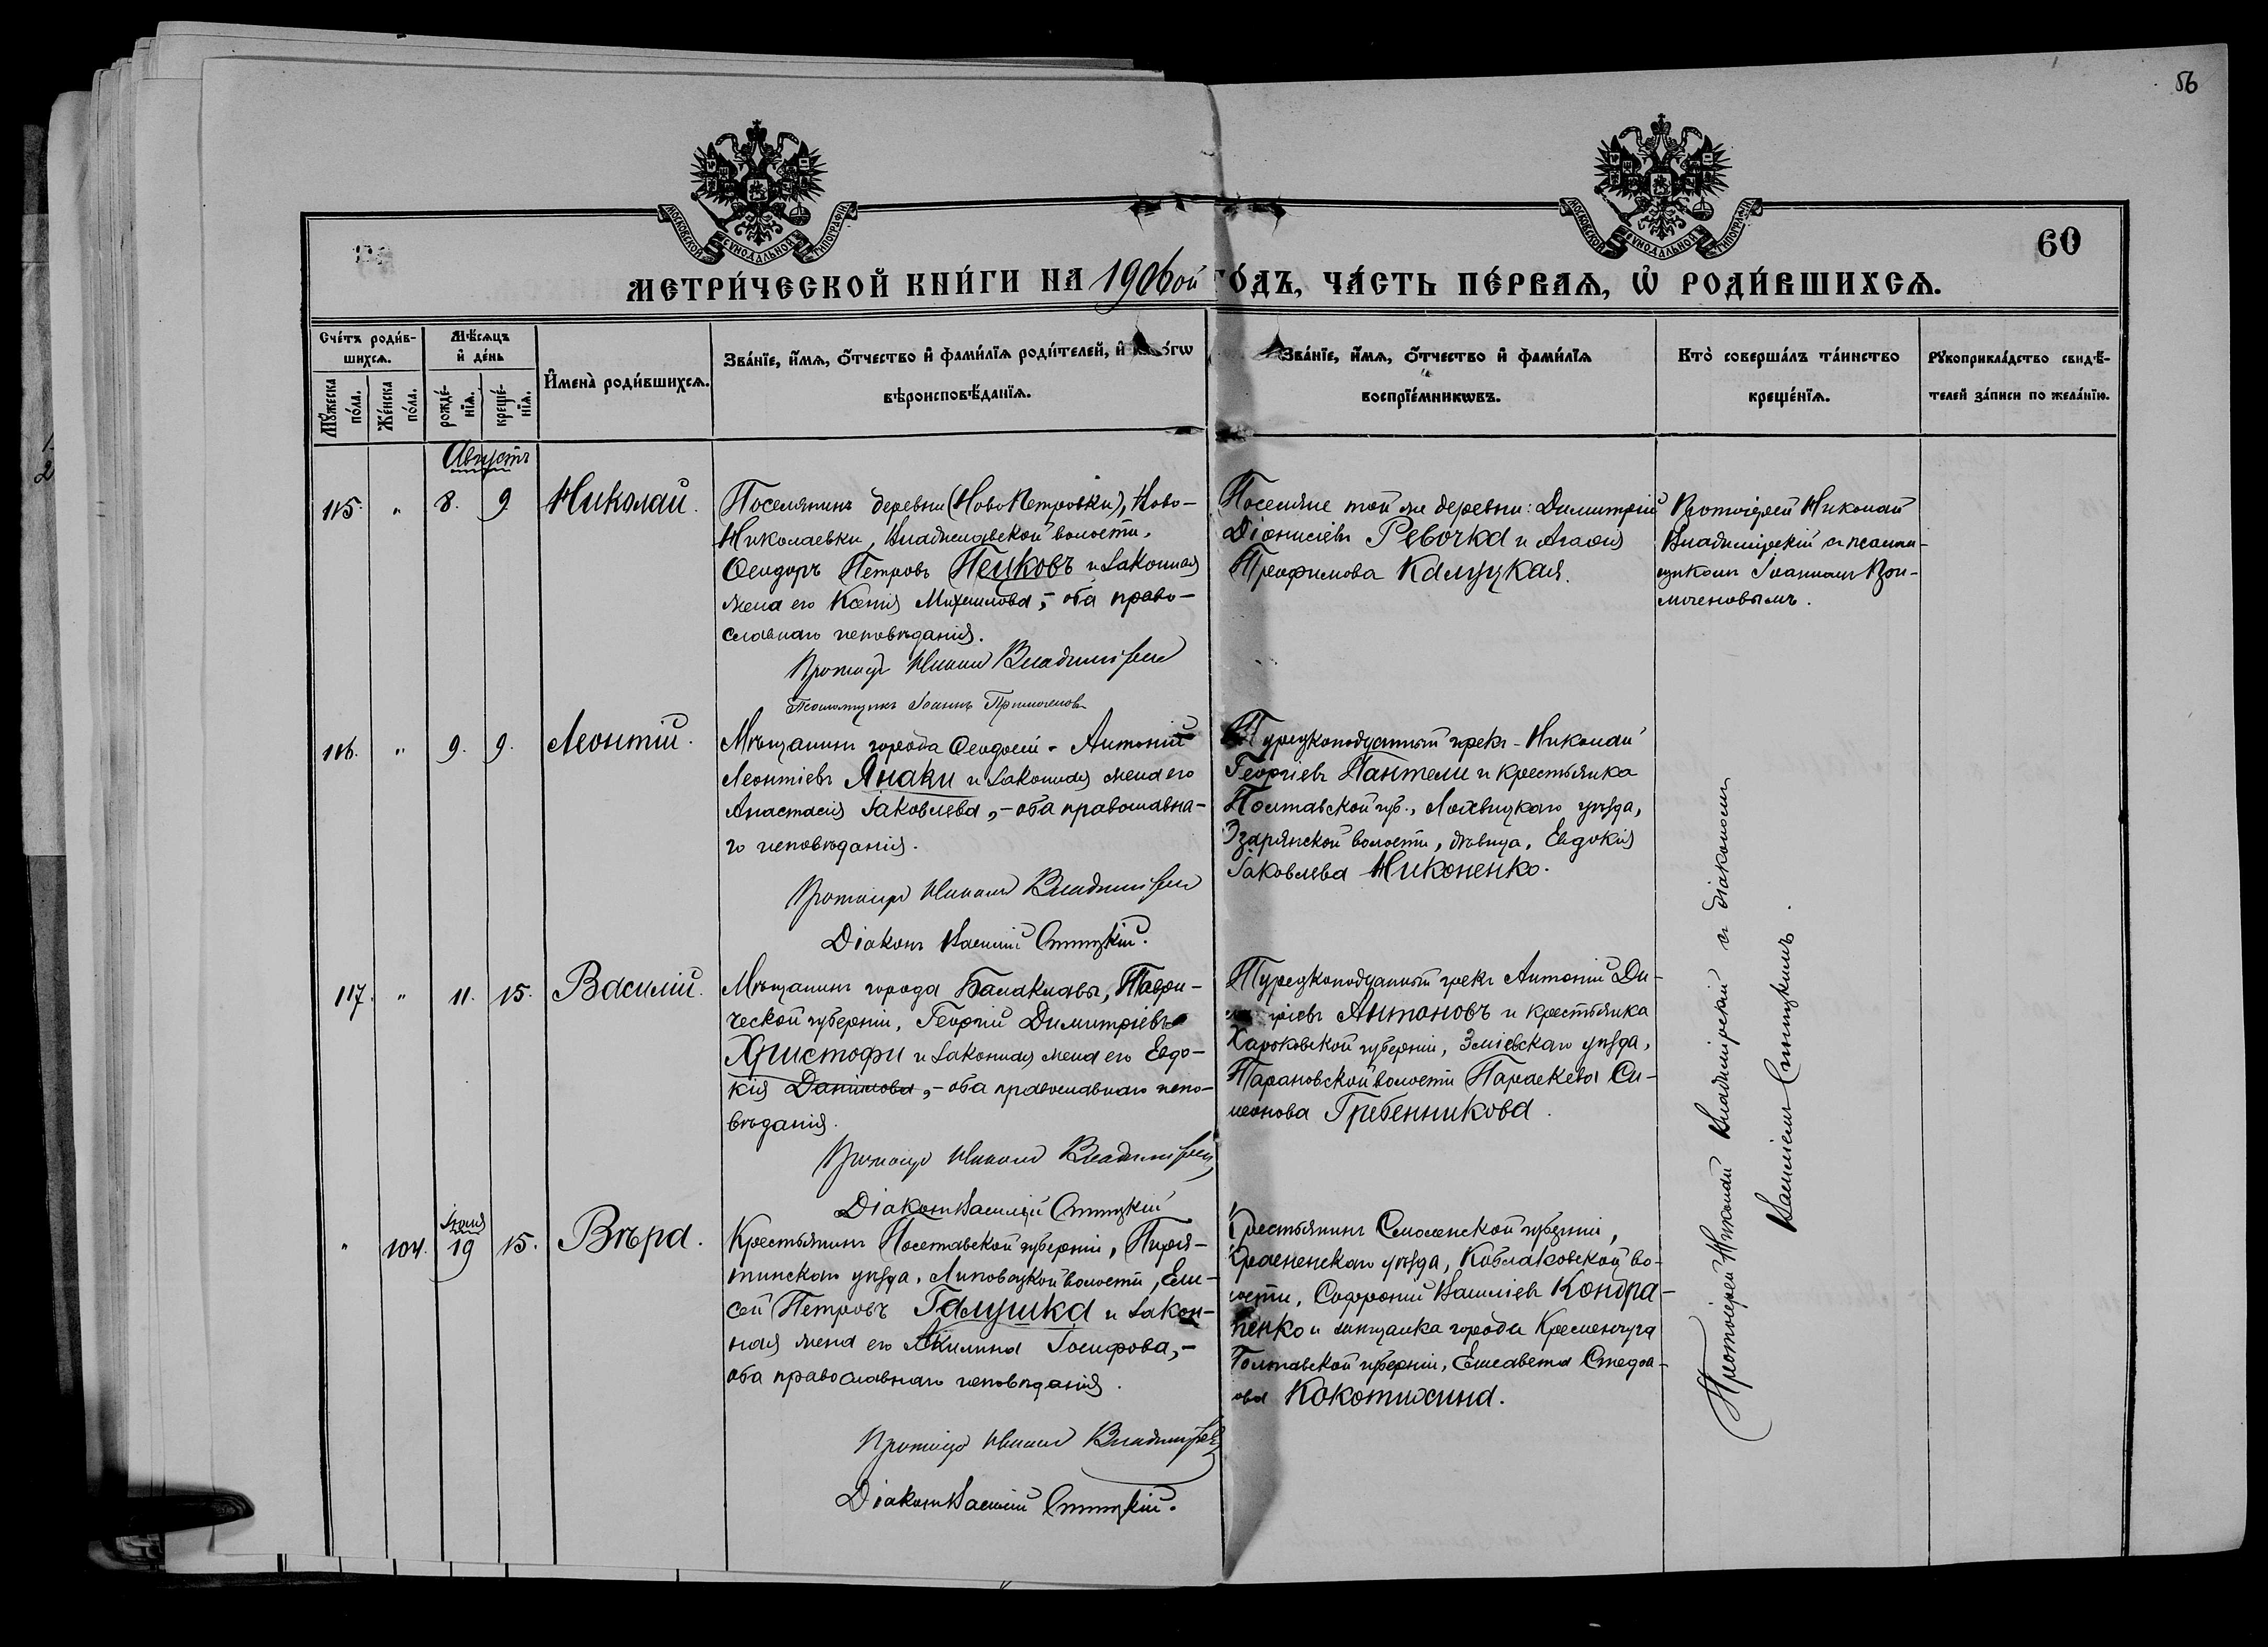 56
МОСКОВСКОЙ СѴНОДАЛЬНОЙ ТИПОГРАФІИ.
МОСКОВСКОЙ СѴНОДАЛЬНОЙ ТИПОГРАФІИ.
60
МЕТРИ́ЧЕСКОЙ КНИ́ГИ НА 1906ой ГО́ДЪ, ЧА́СТЬ ПЕ́РВАѦ, Ѡ҆ РОДИ́ВШИХСѦ.
Сче́тъ роди́в-
шихсѧ.
Мѣ́сѧцъ
и҆ де́нь
Мꙋ́жеска
по́ла.
Же́нска
по́ла.
рожде́-
нїѧ.
креще́-
нїѧ.
И҆мена̀ роди́вшихсѧ.
Зва́нїе, и҆́мѧ, ѻ҆́тчество и҆ фами́лїѧ роди́телей, и҆
вѣроисповѣ́данїѧ.
Зва́нїе, и҆́мѧ, ѻ҆́тчество и҆ фами́лїѧ
воспрїе́мникѡвъ.
Кто̀ соверша́лъ та́инство
креще́нїѧ.
Рꙋкоприкла́дство свидѣ́-
телей за́писи по жела́нїю.
Августъ
115. " 8. 9. Николай.
Поселянинъ деревни (НовоПетровки), Ново-
Николаевки, Владиславской волости,
Ѳеодоръ Петровъ Пецковъ и законная
жена его Ксенія Михаилова, - оба право-
славнаго исповѣданія.
Протоіер Николай Владимірскій
Псаломщикъ Іоаннъ Примоченовъ
Поселяне той же деревни: Димитрій
Діонисіевъ Ревочка и Агаѳія
Трофимова Калуцкая.
Протоіерей Николай
Владимірскій съ псалом-
щикомъ Іоанномъ При-
моченовымъ.
116. " 9. 9. Леонтій.
Мѣщанинъ города Ѳеодосіи - Антоній
Леонтіевъ Янаки и законная жена его
Анастасія Іаковлева, - оба православна-
го исповѣданія.
Протоіер Николай Владимірскій
Діаконъ Василій
Турецкоподданный грекъ - Николай
Георгіевъ Пантели и крестьянка
Полтавской губ., Лохвицкаго уѣзда,
волости, дѣвица, Евдокія
Іаковлева Никоненко.
117. " 11. 15. Василій.
Мѣщанинъ города Балаклавы, Таври-
ческой губерніи, Георгій Димитріевъ
Христофи и законная жена его Евдо-
кія Даніилова, - оба православнаго испо-
вѣданія.
Протоіер Николай Владимірскій
Діаконъ Василій
Турецкоподданный грекъ Антоній Ди-
тріевъ Антоновъ и крестьянка
Харьковской губерніи, Зміевскаго уѣзда,
Тарановской волости Параскева Си-
меонова Гребенникова.
Іюля
" 104. 19 15. Вѣра.
Крестьянинъ Полтавской губерніи, Пиря-
тинскаго уѣзда, волости, Ели-
сей Петровъ Галушка и закон-
ная жена его Акилина Іосифова, -
оба православнаго исповѣданія.
Протоіер Николай Владимірскій
Діаконъ Василій
Крестьянинъ Смоленской губерніи,
Красненскаго уѣзда, Коблаковской во-
лости, Софроній Василіевъ Кондра-
тенко и мѣщанка города Кременчуга
Полтавской губерніи, Елисавета
Кокотихина.
Протоіерей Николай Владимірскій съ діакономъ
Василіемъ